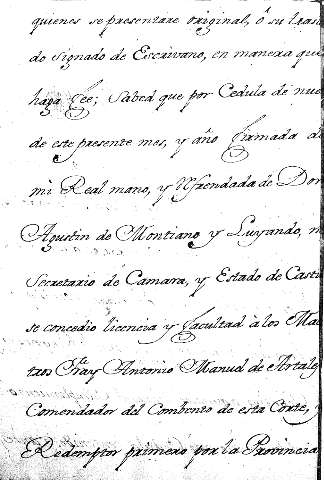 quienes se presentare original, ô su trasla
do signado de Escrivano, en manera que
haga fee; Sabed que por Cedula de nue
de este presente mes, y año firmada de
mi Real mano, y Refrendada de Don
Agustin de Montiano y Luyando, m
Secretario de Camara, y Estado de Casti
se concedio licencia y facultad â los Mae
tros Fray Antonio Manuel de Artale
Comendador del Combento de esta Corte, y
Redemptor primero por la Provincia